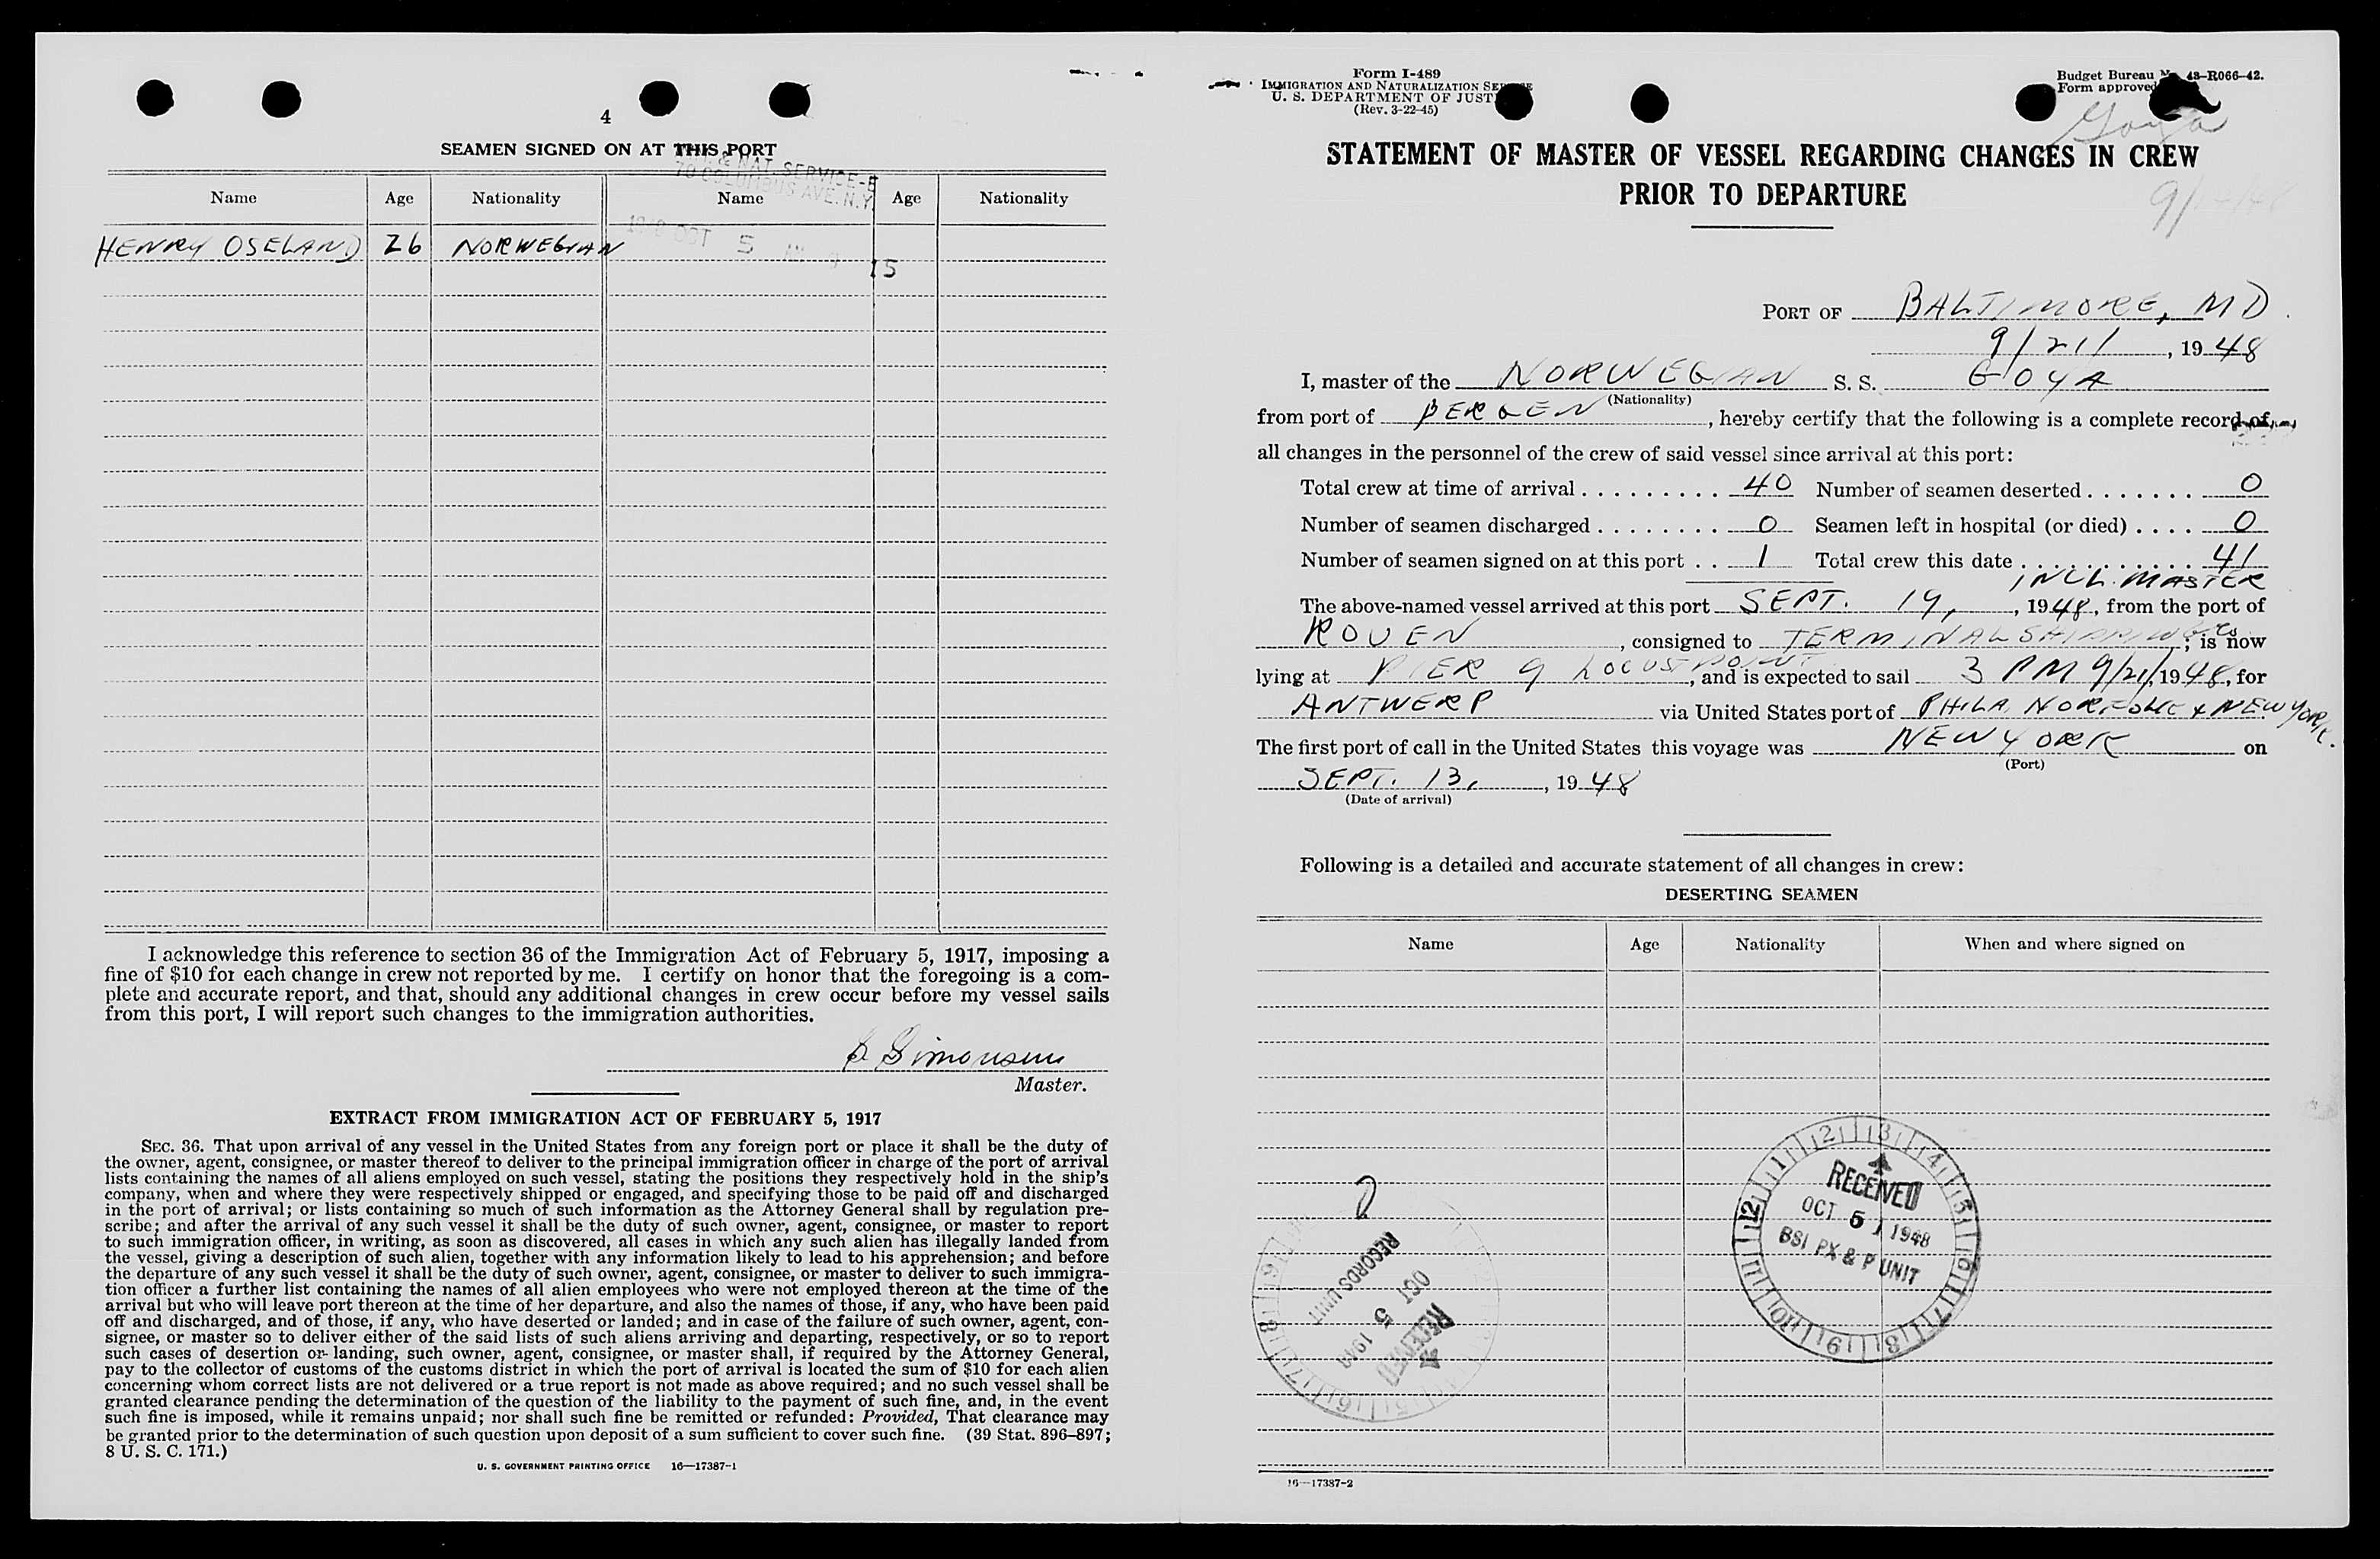 4
SEAMEN SIGNED ON AT THIS PORT
& NAT. SERVICE-E
70 COLUMBUS AVE. N.Y.
Name Age Nationality Name Age Nationality
OCT 5 AM 9
HENRY OSELAND 26 NORWEGIAN
15
I acknowledge this reference to section 36 of the Immigration Act of February 5, 1917, imposing a
fine of $10 for each change in crew not reported by me. I certify on honor that the foregoing is a com-
plete and accurate report, and that, should any additional changes in crew occur before my vessel sails
from this port, I will report such changes to the immigration authorities.
Simonsen
Master.
EXTRACT FROM IMMIGRATION ACT OF FEBRUARY 5, 1917
SEC. 36. That upon arrival of any vessel in the United States from any foreign port or place it shall be the duty of
the owner, agent, consignee, or master thereof to deliver to the principal immigration officer in charge of the port of arrival
lists containing the names of all aliens employed on such vessel, stating the positions they respectively hold in the ship's
company, when and where they were respectively shipped or engaged, and specifying those to be paid off and discharged
in the port of arrival; or lists containing so much of such information as the Attorney General shall by regulation pre-
scribe; and after the arrival of any such vessel it shall be the duty of such owner, agent, consignee, or master to report
to such immigration officer, in writing, as soon as discovered, all cases in which any such alien has illegally landed from
the vessel, giving a description of such alien, together with any information likely to lead to his apprehension; and before
the departure of any such vessel it shall be the duty of such owner, agent, consignee, or master to deliver to such immigra-
tion officer a further list containing the names of all alien employees who were not employed thereon at the time of the
arrival but who will leave port thereon at the time of her departure, and also the names of those, if any, who have been paid
off and discharged, and of those, if any, who have deserted or landed; and in case of the failure of such owner, agent, con-
signee, or master so to deliver either of the said lists of such aliens arriving and departing, respectively, or so to report
such cases of desertion or landing, such owner, agent, consignee, or master shall, if required by the Attorney General,
pay to the collector of customs of the customs district in which the port of arrival is located the sum of $10 for each alien
concerning whom correct lists are not delivered or a true report is not made as above required; and no such vessel shall be
granted clearance pending the determination of the question of the liability to the payment of such fine, and, in the event
such fine is imposed, while it remains unpaid; nor shall such fine be remitted or refunded: Provided, That clearance may
be granted prior to the determination of such question upon deposit of a sum sufficient to cover such fine. (39 Stat. 896-897;
8 U. S. C. 171.)
U. S. GOVERNMENT PRINTING OFFICE 16—17387-1
Form I-489
IMMIGRATION AND NATURALIZATION SERVICE
U. S. DEPARTMENT OF JUST
(Rev. 3-22-45)
Budget Bureau No. 43-R066-42.
Form approved
Goya
STATEMENT OF MASTER OF VESSEL REGARDING CHANGES IN CREW
PRIOR TO DEPARTURE
PORT OF BALTIMORE, MD.
9/21/, 1948
I, master of the NORWEGIAN S. S. GOYA
(Nationality)
from port of BERGEN, hereby certify that the following is a complete record of
all changes in the personnel of the crew of said vessel since arrival at this port:
Total crew at time of arrival . . . . . . . . . 40 Number of seamen deserted . . . . . . . 0
Number of seamen discharged . . . . . . . . 0 Seamen left in hospital (or died) . . . . 0
Number of seamen signed on at this port . . 1 Total crew this date . . . . . . . . . . . 41
INCL. MASTER
The above-named vessel arrived at this port SEPT. 19, 1948, from the port of
ROUEN, consigned to TERMINAL SHIPPING Co; is now
lying at PIER 9 LOCUST POINT, and is expected to sail 3 PM 9/21/1948, for
ANTWERP via United States port of PHILA, NORFOLK & NEW YORK.
The first port of call in the United States this voyage was NEW YORK on
(Port)
SEPT. 13, 1948
(Date of arrival)
Following is a detailed and accurate statement of all changes in crew:
DESERTING SEAMEN
Name Age Nationality When and where signed on
RECEIVED
OCT 5 1948
BSI PX & P UNIT
RECEIVED
OCT 5 1948
RECORDS UNIT
16—17387-2